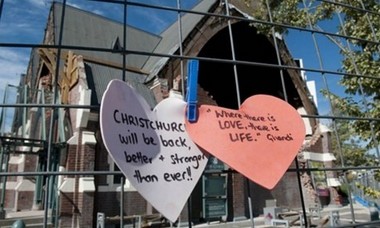 CHRISTCHURCH
will be back,
better + stronger
than ever!!
"Where there is
LOVE, there is
LIFE." Ghandi